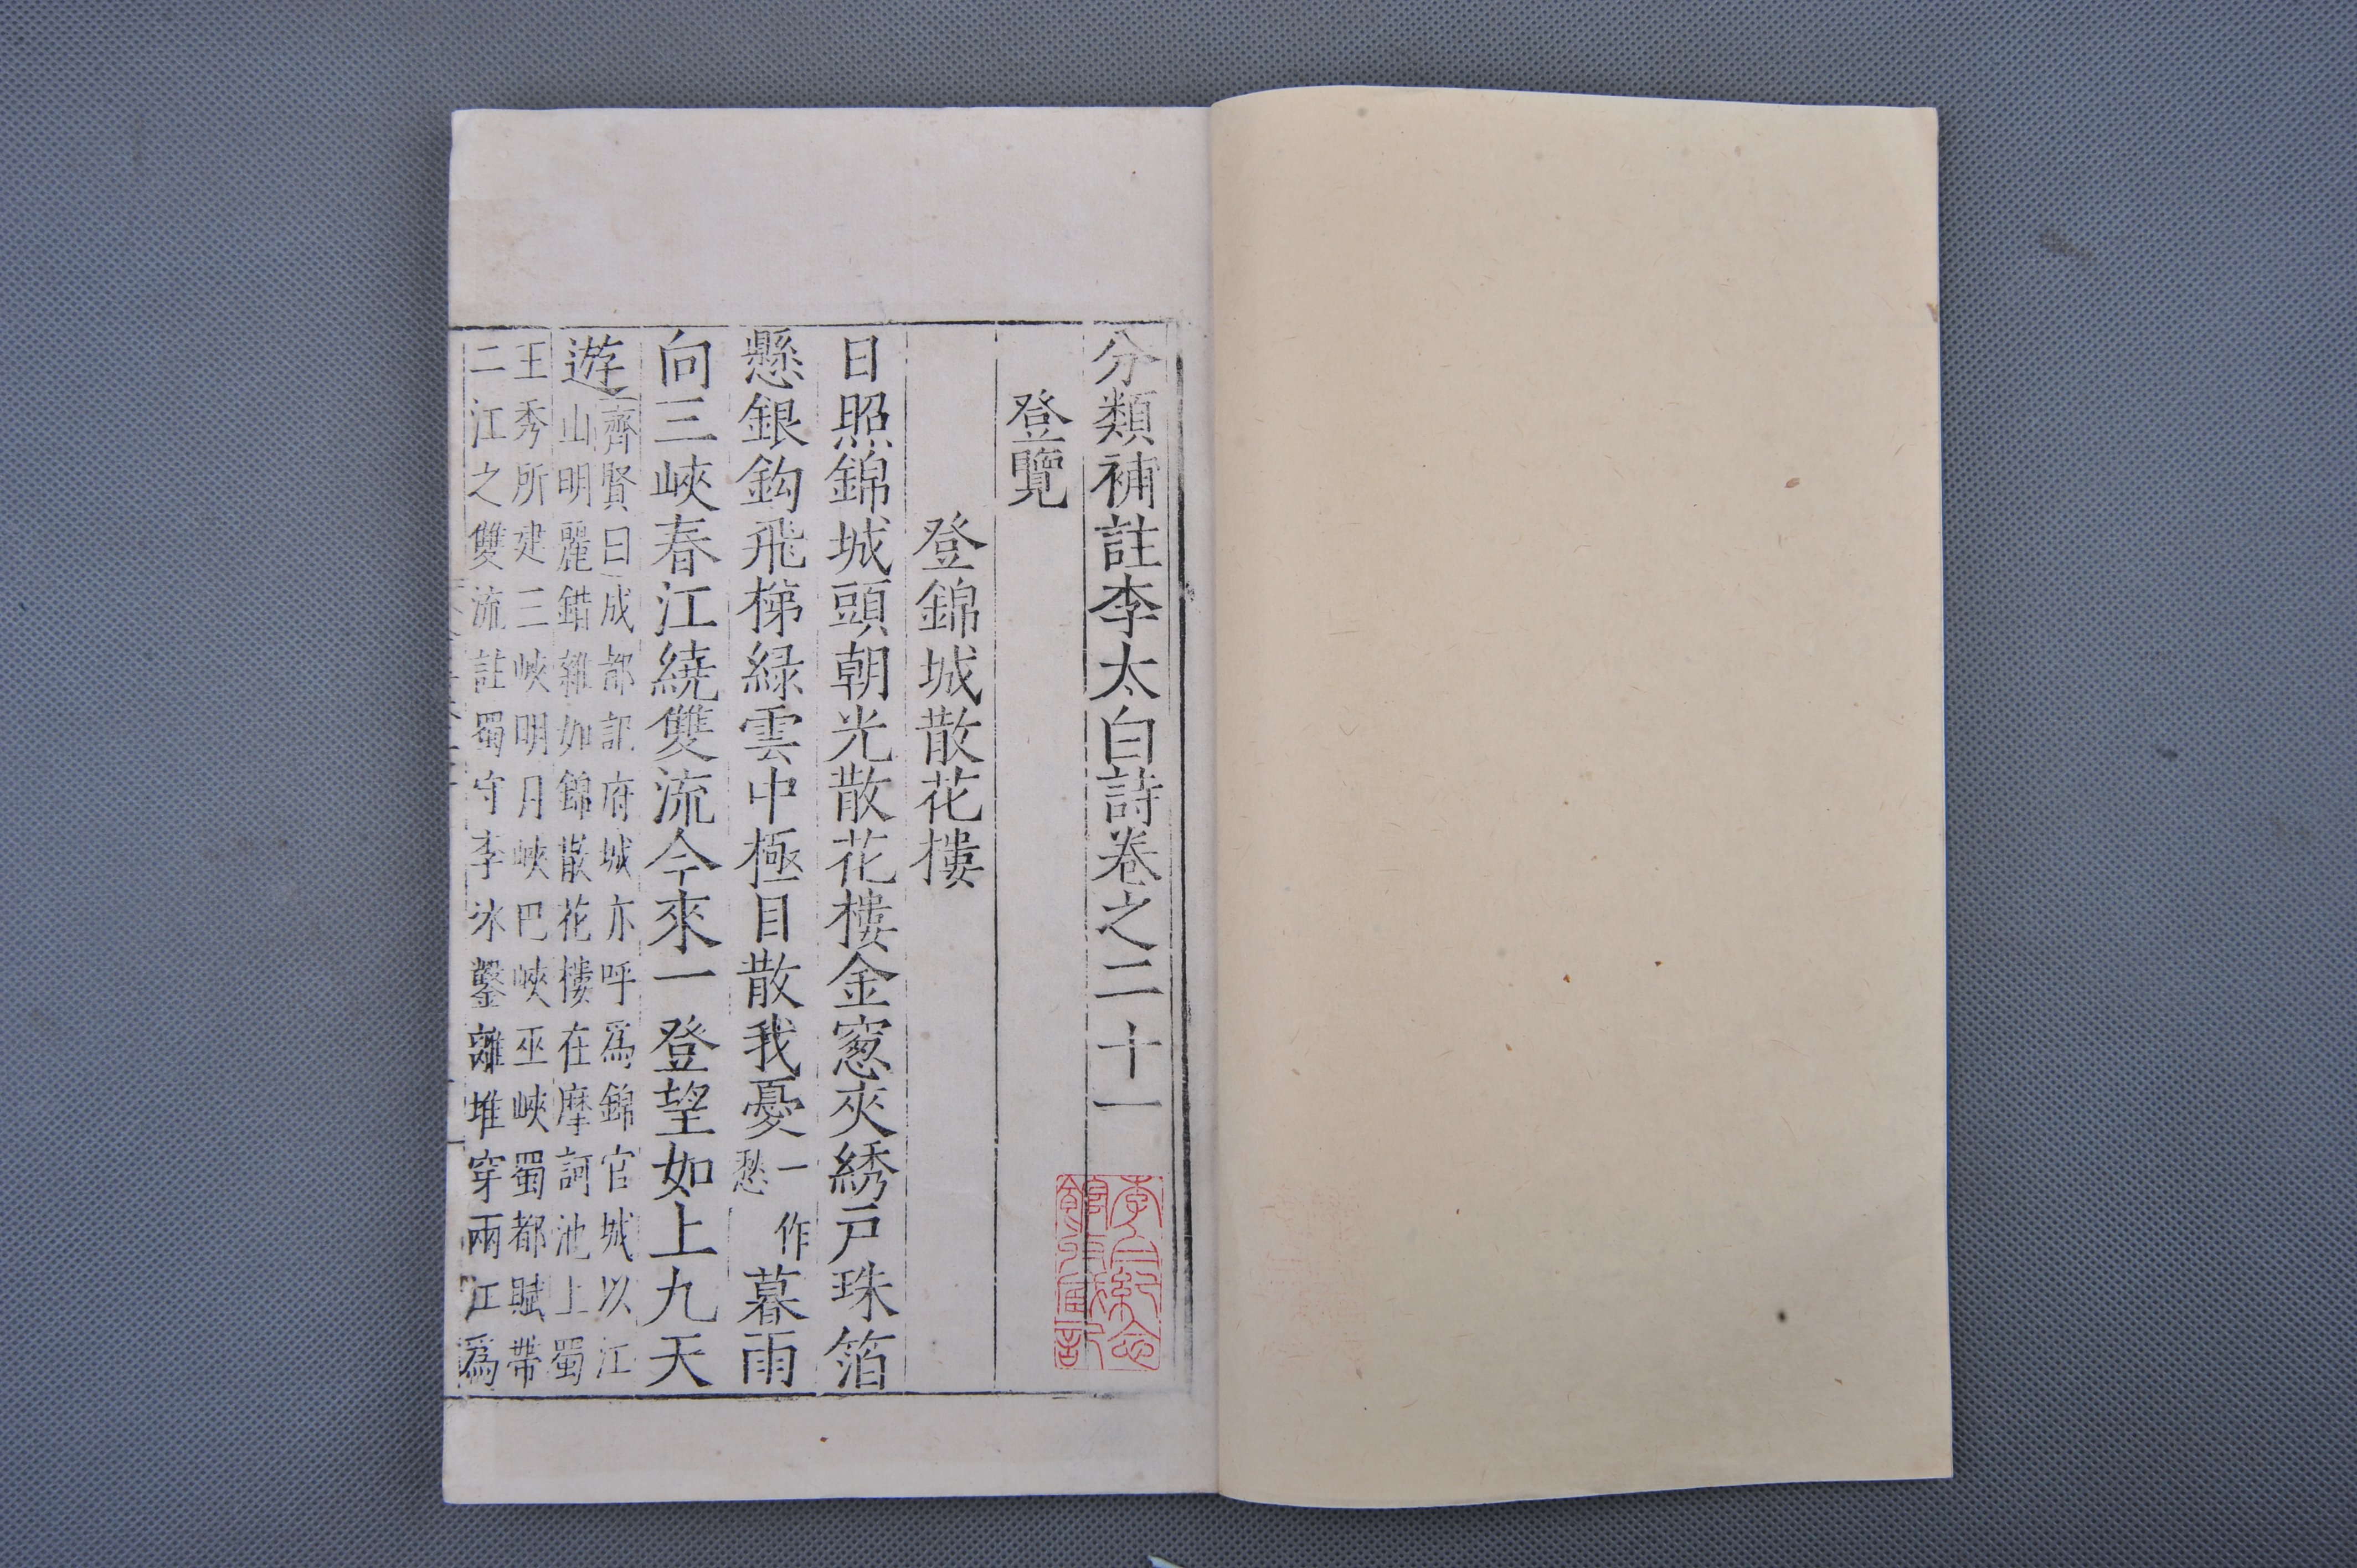 分類補註李太白詩卷之二十一
登覽
登錦城散花樓
日照錦城頭朝光散花樓金窻夾綉戸珠箔
懸銀鈎飛梯緑雲中極目散我憂一作愁暮雨
向三峽春江繞雙流今來一登望如上九天
遊
齊賢曰成都記府城亦呼爲錦官城以江
山明麗錯雜如錦散花樓在摩訶池上蜀
王秀所建三峽明月峽巴峽巫峽蜀都賦帶
二江之雙流註蜀守李冰鑿離堆穿兩江爲
李白紀念